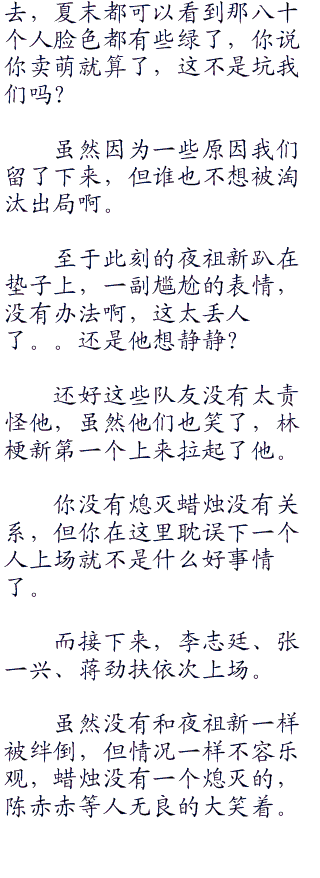 去，夏末都可以看到那八十
个人脸色都有些绿了，你说
你卖萌就算了，这不是坑我
们吗？
虽然因为一些原因我们
留了下来，但谁也不想被淘
汰出局啊。
至于此刻的夜祖新趴在
垫子上，一副尴尬的表情，
没有办法啊，这太丢人
了。。还是他想静静？
还好这些队友没有太责
怪他，虽然他们也笑了，林
梗新第一个上来拉起了他。
你没有熄灭蜡烛没有关
系，但你在这里耽误下一个
人上场就不是什么好事情
了。
而接下来，李志廷、张
一兴、蒋劲扶依次上场。
虽然没有和夜祖新一样
被绊倒，但情况一样不容乐
观，蜡烛没有一个熄灭的，
陈赤赤等人无良的大笑着。